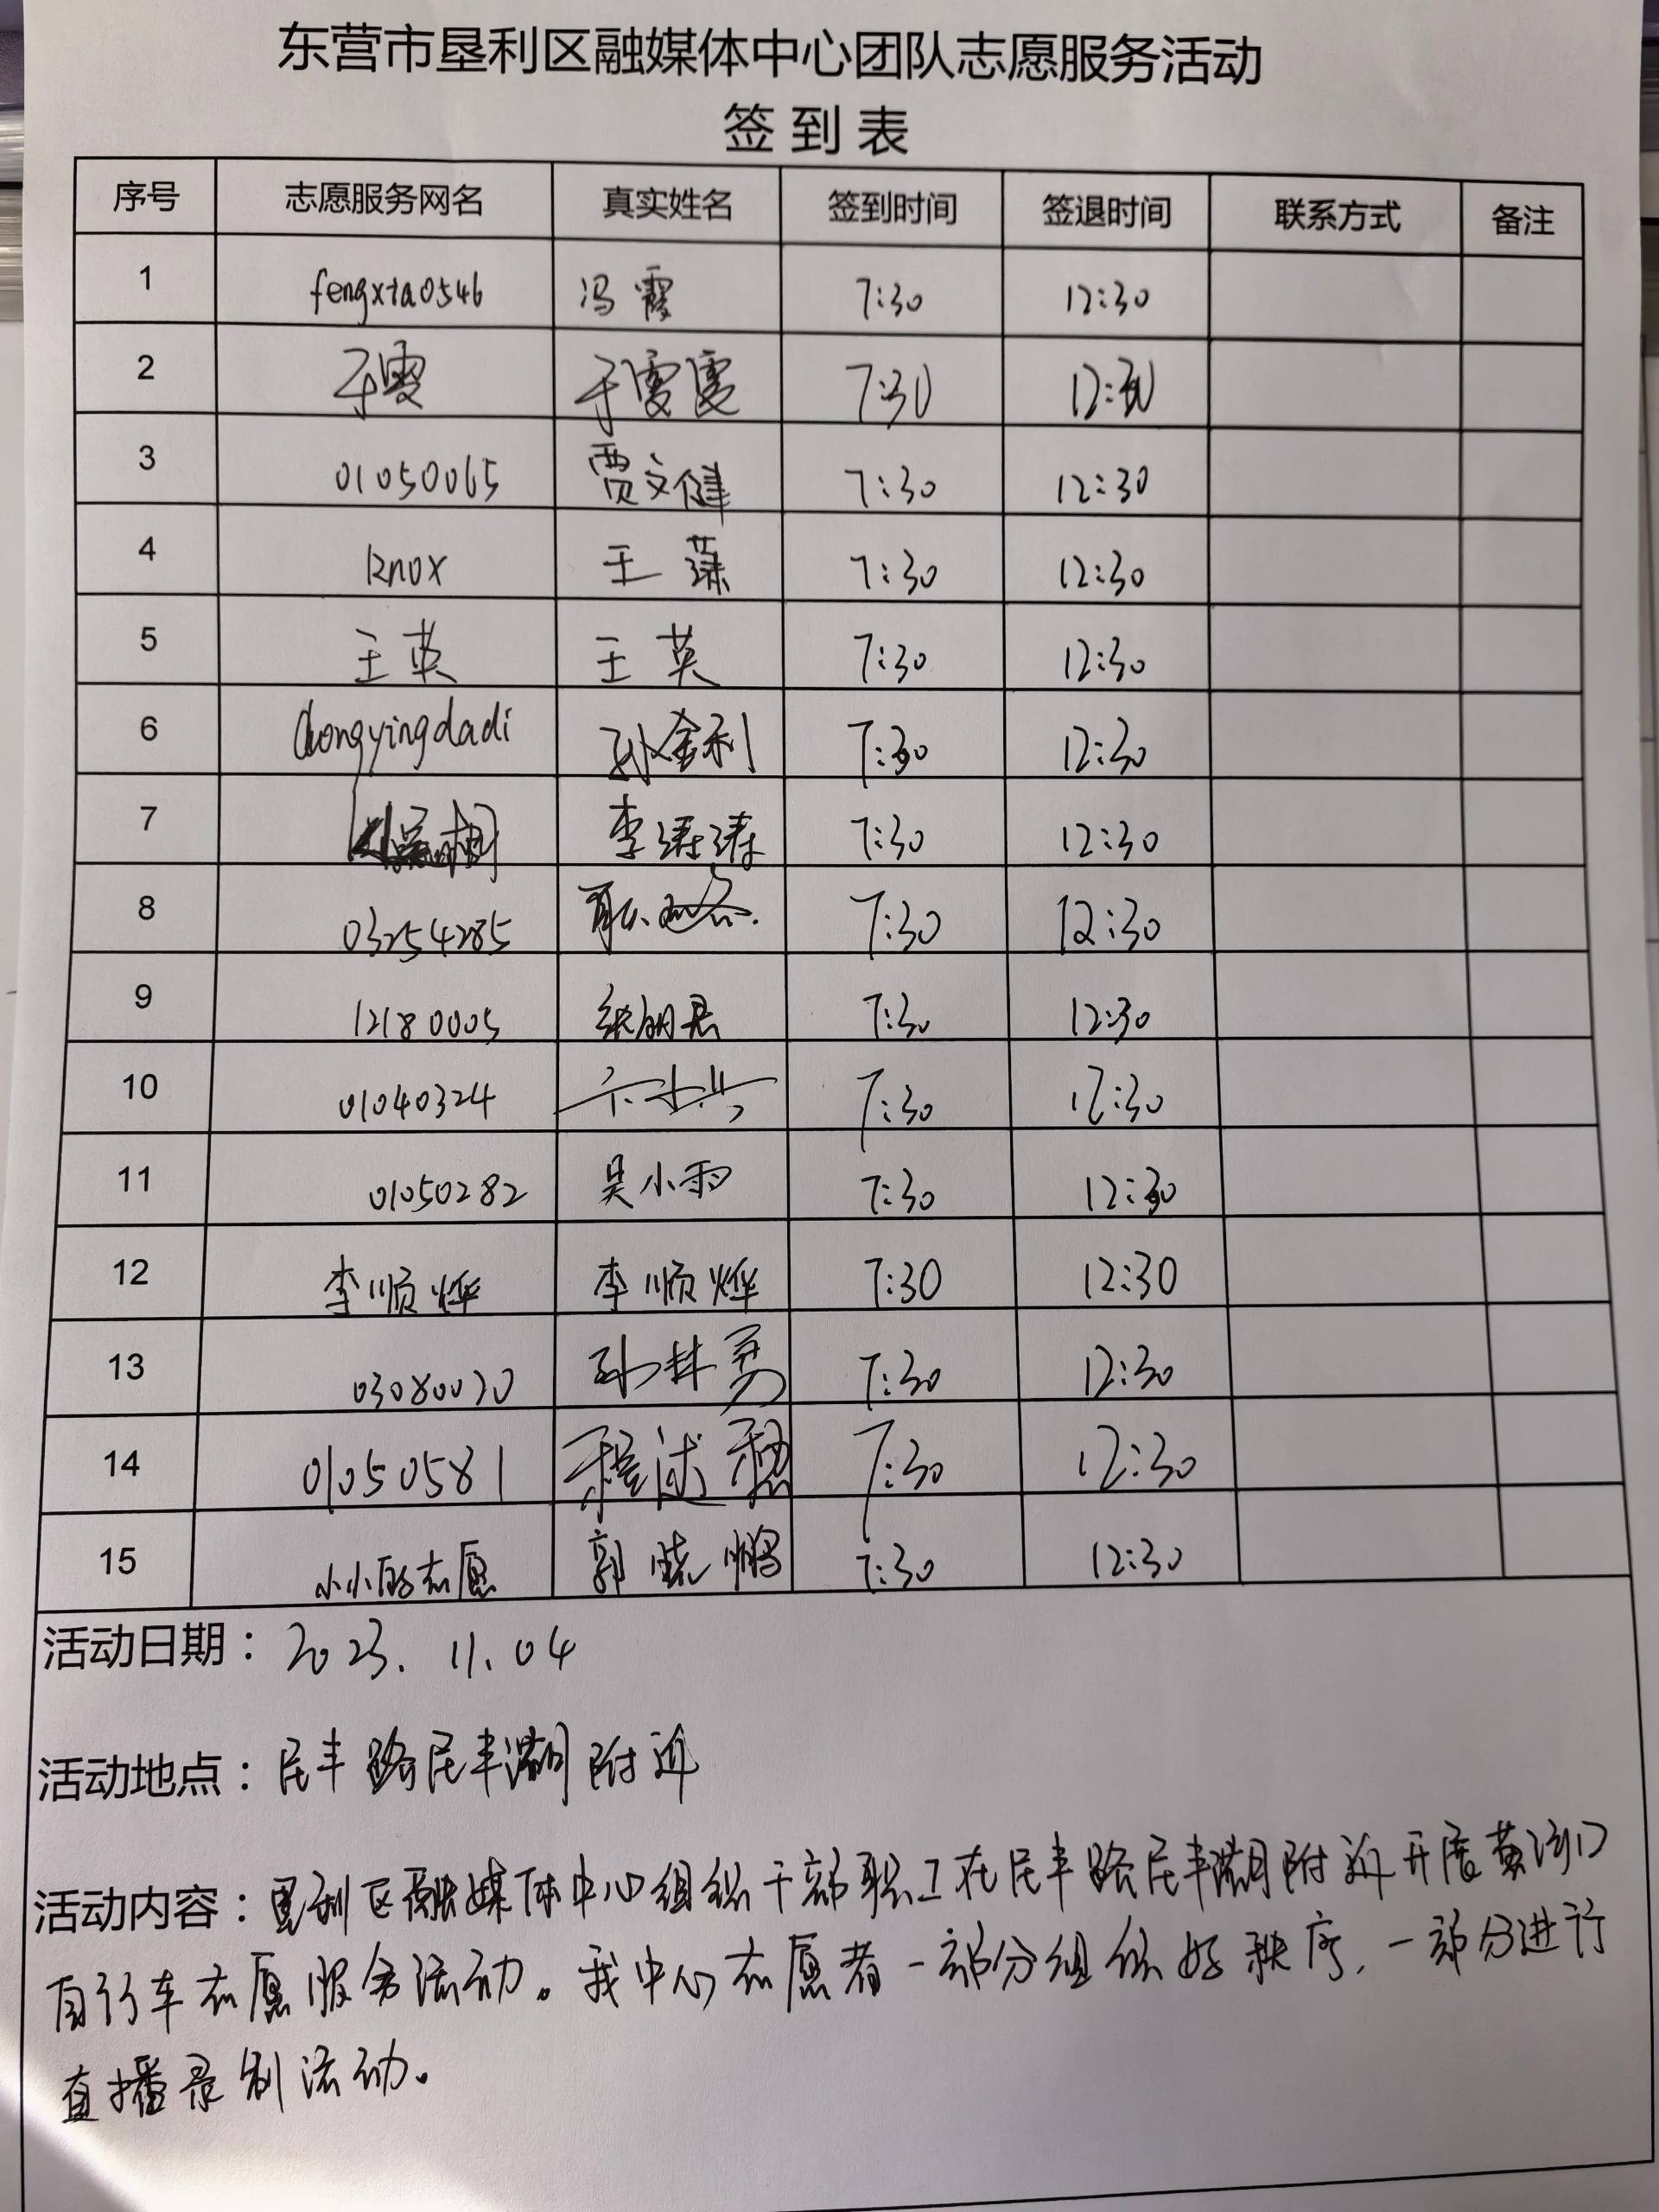 东营市垦利区融媒体中心团队志愿服务活动
签到表
序号 志愿服务网名 真实姓名 签到时间 签退时间 联系方式 备注
1 fengxia0546 冯霞 7:30 12:30
2 7:30 12:30
3 01050065 贾文健 7:30 12:30
4 knox 王蕊 7:30 12:30
5 王英 王英 7:30 12:30
6 chongyingdadi 孙金利 7:30 12:30
7 李涛涛 7:30 12:30
8 03254285 7:30 12:30
9 12180005 张朋君 7:30 12:30
10 01040324 7:30 12:30
11 01050282 吴小雨 7:30 12:30
12 李顺烨 李顺烨 7:30 12:30
13 03080020 孙林勇 7:30 12:30
14 01050581 7:30 12:30
15 小小的志愿 郭晓鹏 7:30 12:30
活动日期：2023.11.04
活动地点：民丰路民丰湖附近
活动内容：垦利区融媒体中心组织干部职工在民丰路民丰湖附近开展黄河口
自行车志愿服务活动。我中心志愿者一部分组织好秩序，一部分进行
直播录制活动。